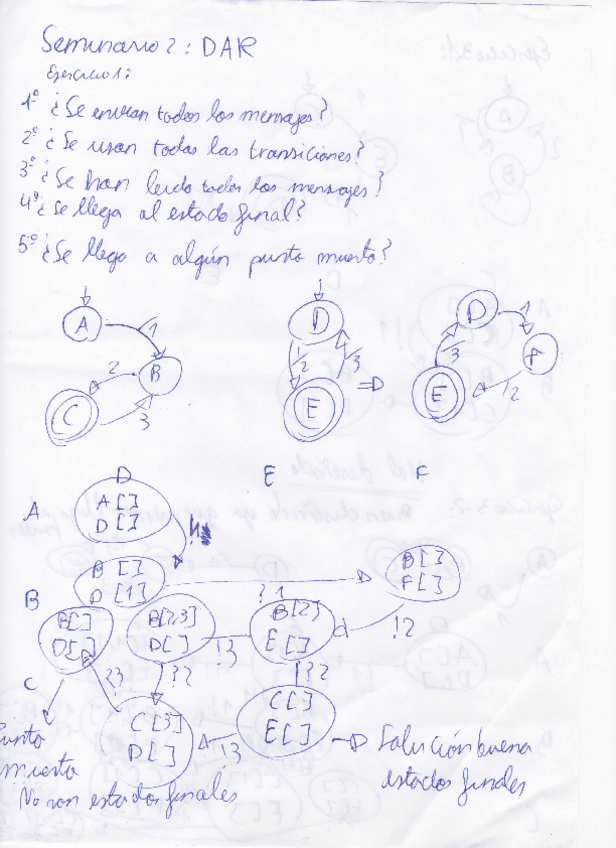 Seminario 2: DAR
Ejercicio 1:
1º ¿Se envian todos los mensajes?
2º ¿Se usan todas las transiciones?
3º ¿Se han leido todos los mensajes?
4º ¿Se llega al estado final?
5º ¿Se llega a algún punto muerto?
A 1 B 2 C 3
D 2 E 3 ⇒
D 1 F 2 E 3
D E F
A
A[]
D[]
B
B[]
D[1]
?1
B[]
F[]
!2
B[2]
E[]
!3
B[2,3]
D[]
B[]
D[]
C
?3
??
!?2
C[3]
D[]
!3
C[]
E[]
Punto
muerto
No son estados finales
Solución buena
estados finales